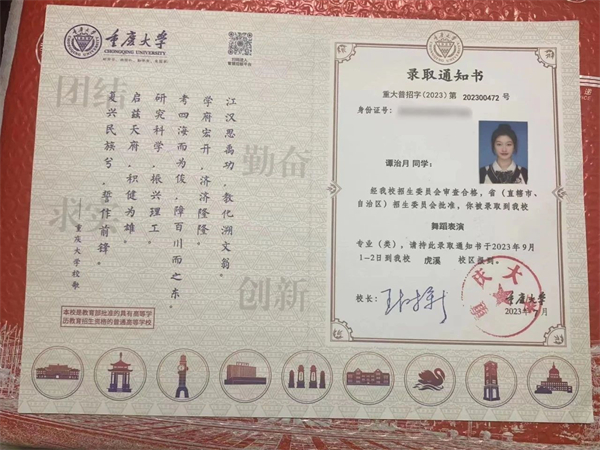 重庆大学
CHONGQING UNIVERSITY
团结
求实
勤奋
创新
江汉思禹功,教化溯文翁。
学府宏开,济济隆隆。
考四海而为俊,障百川而之东。
研究科学,振兴理工。
启兹天府,积健为雄。
复兴民族兮,誓作前锋。
重庆大学校歌
本校是教育部批准的具有高等学
历教育招生资格的普通高等学校
录取通知书
重大普招字(2023)第 202300472 号
身份证号:
谭治月 同学:
经我校招生委员会审查合格,省(直辖市、
自治区)招生委员会批准,你被录取到我校
舞蹈表演
专业(类),请持此录取通知书于2023年9月
1-2日到我校 虎溪 校区报到。
校长:
重庆大学
2023年7月